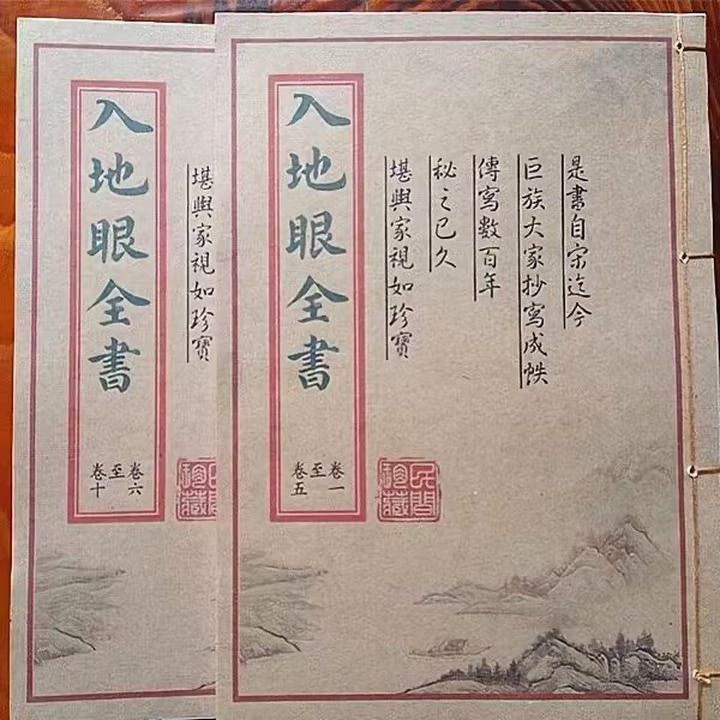 是書自宋迄今
巨族大家抄寫成帙
傳寫數百年
秘之已久
堪輿家視如珍寶
民間珍藏
入地眼全書
卷一
至
卷五
堪輿家視如珍寶
入地眼全書
卷六
至
卷十